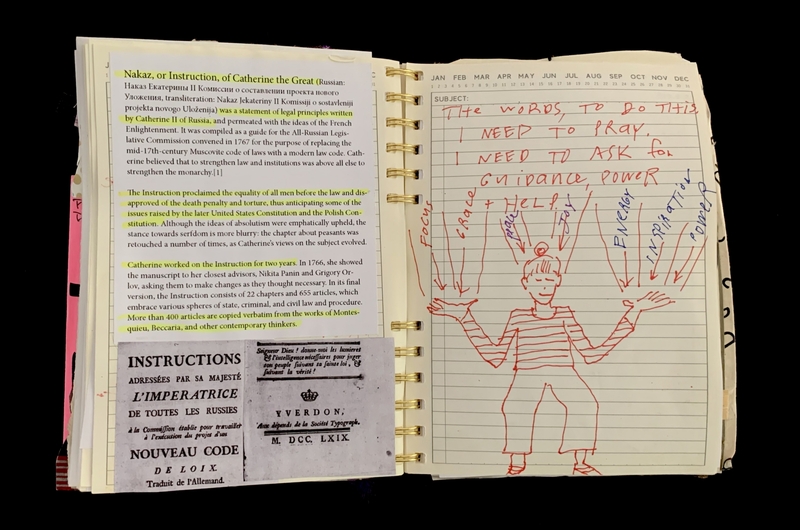 Nakaz, or Instruction, of Catherine the Great (Russian:
Наказ Екатерины II Комиссии о составлении проекта нового
Уложения, transliteration: Nakaz Jekateriny II Komissij o sostavleniji
projekta novogo Uloženija) was a statement of legal principles written
by Catherine II of Russia, and permeated with the ideas of the French
Enlightenment. It was compiled as a guide for the All-Russian Legis-
lative Commission convened in 1767 for the purpose of replacing the
mid-17th-century Muscovite code of laws with a modern law code. Cath-
erine believed that to strengthen law and institutions was above all else to
strengthen the monarchy.[1]
The Instruction proclaimed the equality of all men before the law and dis-
approved of the death penalty and torture, thus anticipating some of the
issues raised by the later United States Constitution and the Polish Con-
stitution. Although the ideas of absolutism were emphatically upheld, the
stance towards serfdom is more blurry: the chapter about peasants was
retouched a number of times, as Catherine's views on the subject evolved.
Catherine worked on the Instruction for two years. In 1766, she showed
the manuscript to her closest advisors, Nikita Panin and Grigory Or-
lov, asking them to make changes as they thought necessary. In its final
version, the Instruction consists of 22 chapters and 655 articles, which
embrace various spheres of state, criminal, and civil law and procedure.
More than 400 articles are copied verbatim from the works of Montes-
quieu, Beccaria, and other contemporary thinkers.
INSTRUCTIONS
ADRESSÉES PAR SA MAJESTÉ
L'IMPERATRICE
DE TOUTES LES RUSSIES
à la Commission établie pour travailler
à l'exécution du projet d'un
NOUVEAU CODE
DE LOIX.
Traduit de l'Allemand.
Seigneur Dieu! donne-moi les lumieres
& l'intelligence nécessaires pour juger
ton peuple suivant ta sainte loi, &
suivant la vérité!
YVERDON,
Aux dépends de la Société Typograph.
M. DCC. LXIX.
JAN FEB MAR APR MAY JUN JUL AUG SEP OCT NOV DEC
SUBJECT:
THE WORDS, TO DO THIS
I NEED TO PRAY.
I NEED TO ASK for
GUIDANCE, POWER
+ HELP.
FOCUS
GRACE
JOY
ENERGY
INSPIRATION
POWER